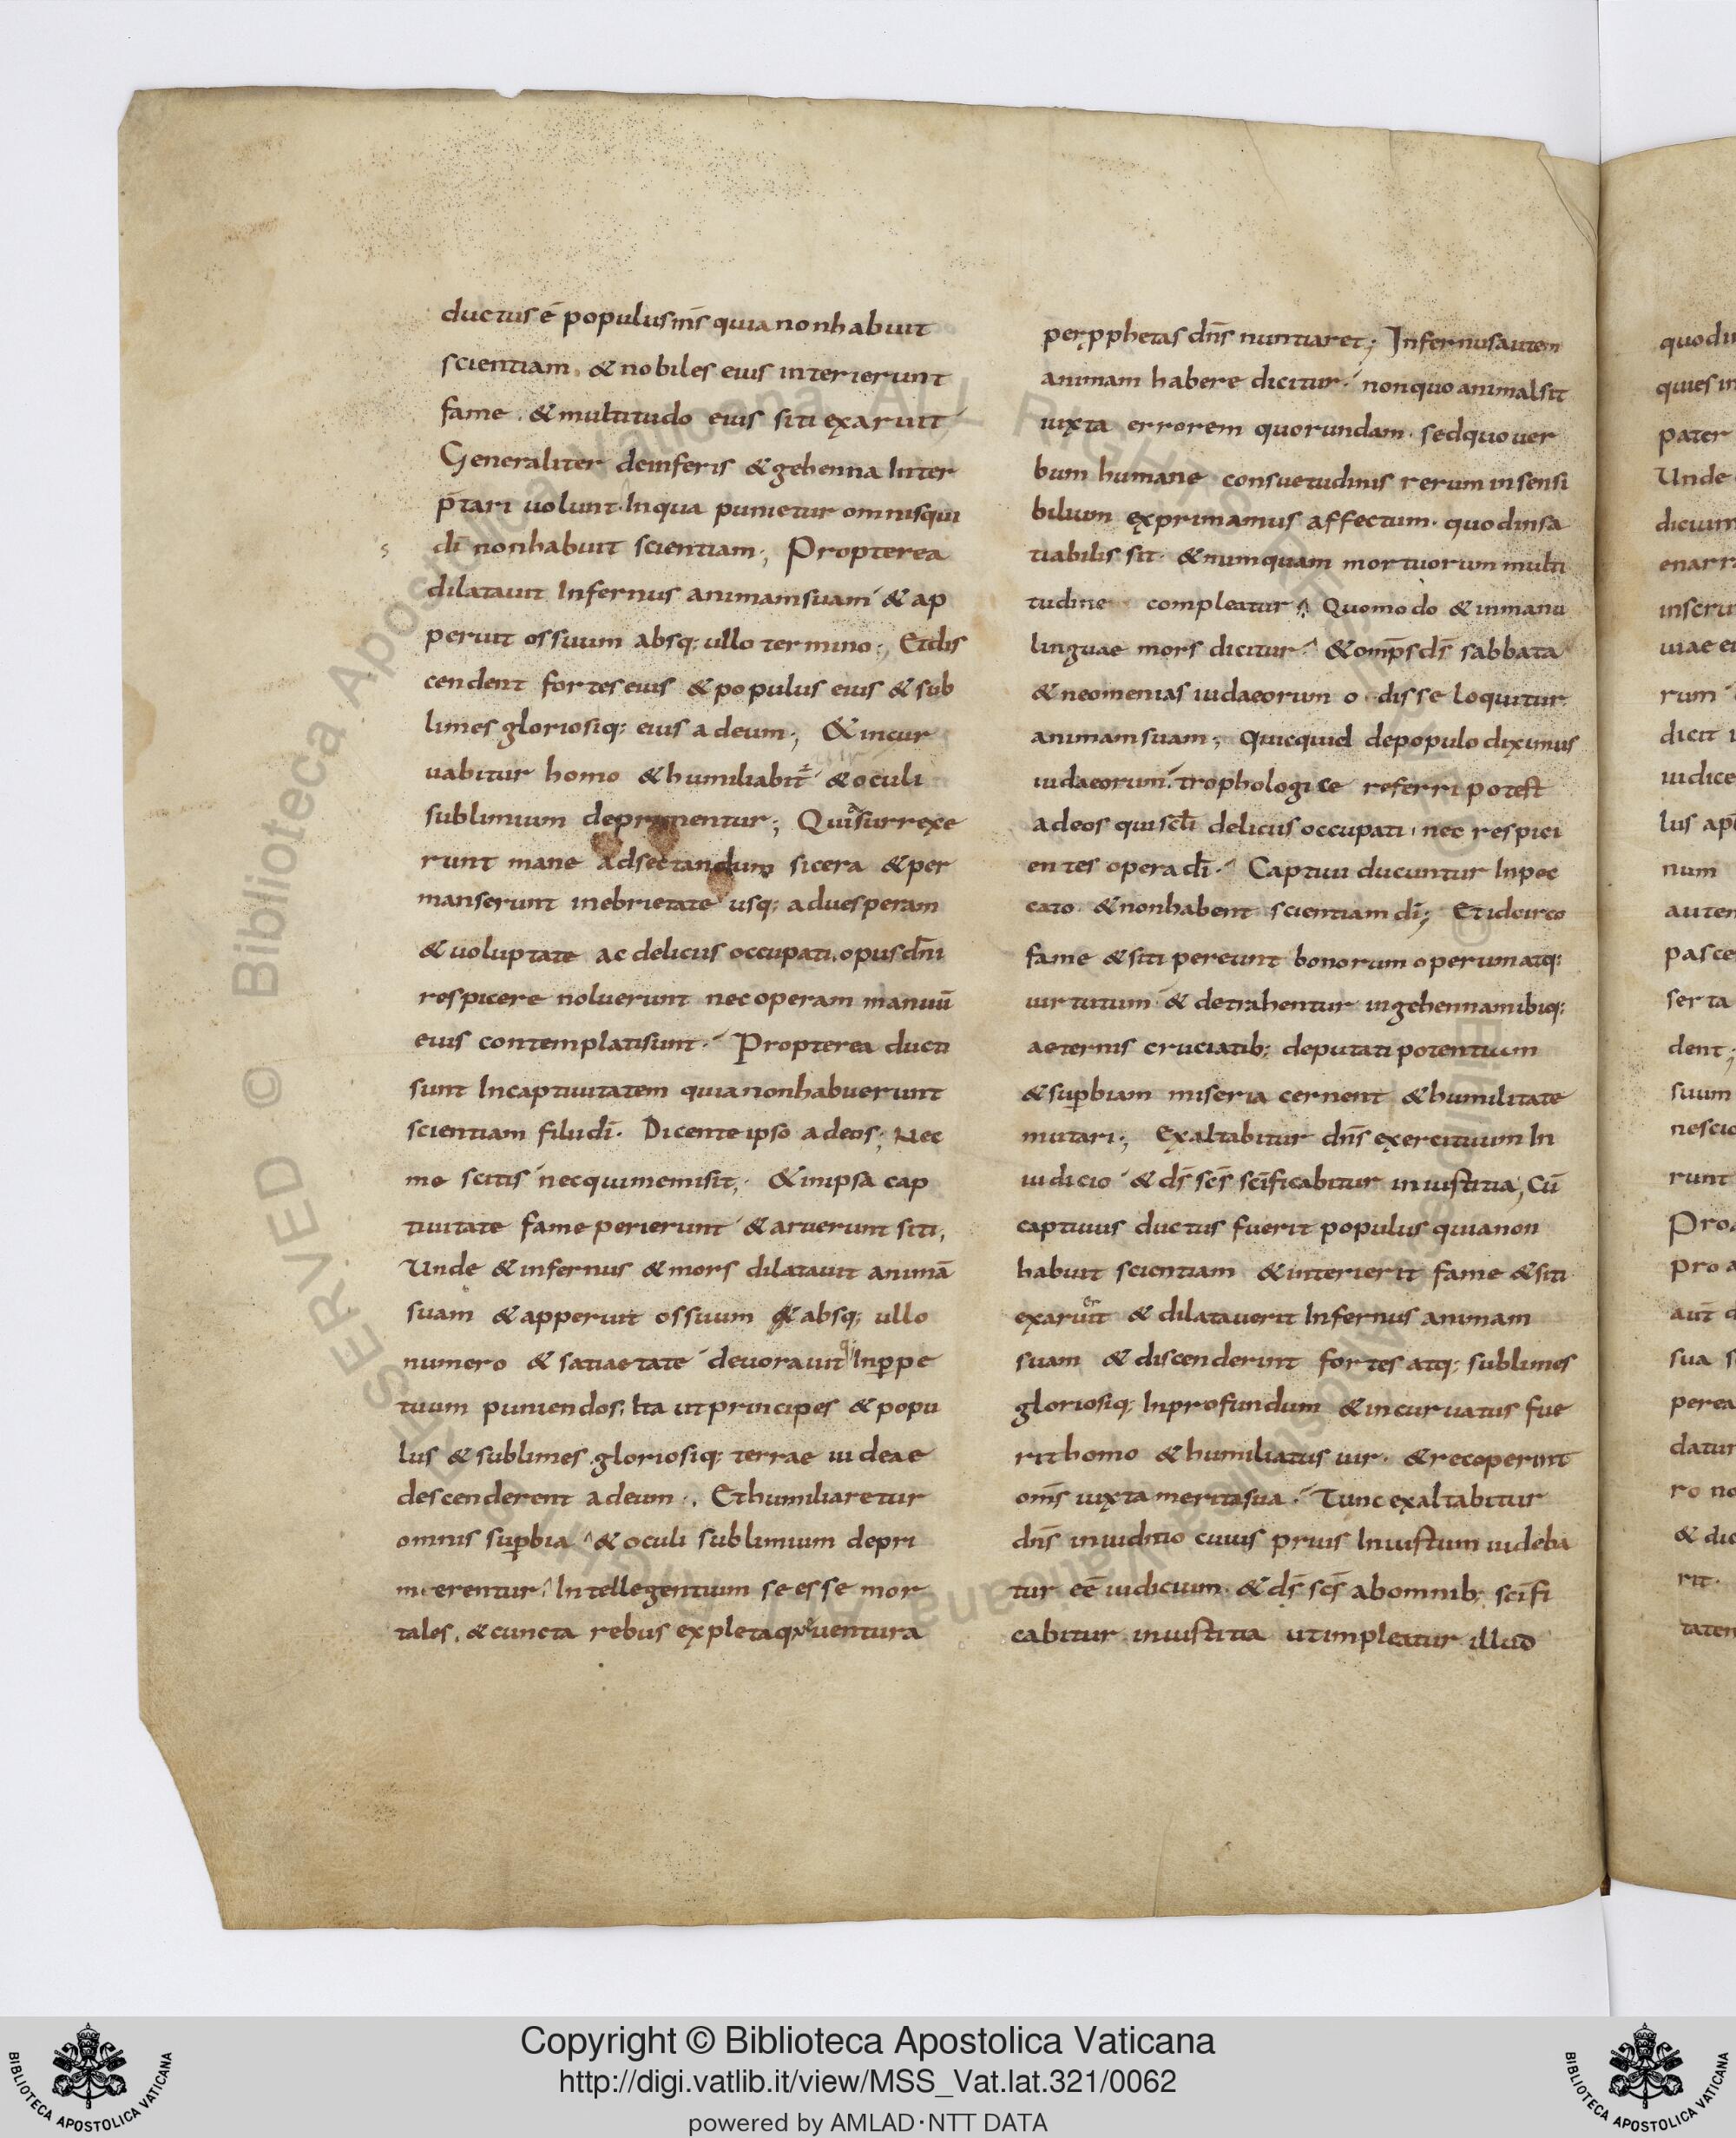 ductus ē populus m̄s quia non habuit
scientiam. & nobiles eius interierunt
fame. & multitudo eius siti exaruit
Generaliter de inferis & gehenna Inter
p̄tari uolunt. In qua punietur omnis qui
s
dī non habuit scientiam; Propterea
dilatauit Infernus animam suam & ap
peruit ossuum absq; ullo termino; Et dis
cendent fortes eius & populus eius & sub
limes gloriosiq; eius ad eum; & incur
uabitur homo & humiliabit̄ & oculi
sublimium deprimentur; Qui surrexe
runt mane ad sectandum sicera & per
manserunt in ebrietate usq; ad uesperam
& uoluptate ac deliciis occupati. opus dn̄i
respicere noluerunt nec operam manuū
eius contemplati sunt. Propterea ducti
sunt In captiuitatem quia non habuerunt
scientiam filii dī. Dicente ipso ad eos; Nec
me scitis nec qui me misit; & in ipsa cap
tiuitate fame perierunt & aruerunt siti,
Unde & infernus & mors dilatauit animā
suam & apperuit ossuum & absq; ullo
numero & satiaetate deuorauit In ꝑpe
tuum puniendos; Ita ut principes & popu
lus & sublimes gloriosiq; terrae iudeae
descenderent ad eum; Et humiliaretur
omnis suꝑbia & oculi sublimium depri
merentur; Intellegentium se esse mor
tales. & cuncta rebus expleta quę uentura
per ꝓphetas dn̄s nuntiaret; Infernus autem
animam habere dicitur. non quo animal sit
iuxta errorem quorundam. sed quo uer
bum humane consuetudinis rerum insensi
bilium exprimamus affectum. quod insa
tiabilis sit. & numquam mortuorum multi
tudine compleatur; Quomodo & in manu
linguae mors dicitur. & omp̄s ds̄ sabbata
& neomenias iudaeorum odisse loquitur
animam suam; Quicquid de populo diximus
iudaeorum. trophologice referri potest
ad eos qui scl̄i deliciis occupati. nec respici
entes opera dī. Captiui ducuntur In pec
cato. & non habent scientiam dī; Et idcirco
fame & siti pereunt bonorum operum atq;
uirtutum & detrahentur in gehennam ibiq;
aeternis cruciatib; deputati potentium
& suꝑbiam miseria cernent & humilitate
mutari; Exaltabitur dn̄s exercituum In
iudicio & ds̄ scs̄ scīficabitur in iustitia; Cū
captiuus ductus fuerit populus quia non
habuit scientiam & interierit fame & siti
er
exaruit & dilatauerit Infernus animam
suam & discenderint fortes atq; sublimes
gloriosiq; In profundum & incuruatus fue
rit homo & humiliatus uir. & receperint
om̄s iuxta merita sua. Tunc exaltabitur
dn̄s in iuditio cuius prius Iniustum uideba
tur eē iudicium. & ds̄ scs̄ ab omnib; scīfi
cabitur in iustitia ut impleatur illud
quod
quies in
pater
Unde
dicium
enarr
inscru
uiae ei
rum
dicit
iudice
lus
num
autem
pasce
serta
dent;
suum
nescio
runt
pro a
aut̄
sua s
perea
datur
ro no
& dic
rit.
taten
Copyright © Biblioteca Apostolica Vaticana
http://digi.vatlib.it/view/MSS_Vat.lat.321/0062
powered by AMLAD·NTT DATA
BIBLIOTECA APOSTOLICA VATICANA
BIBLIOTECA APOSTOLICA VATICANA